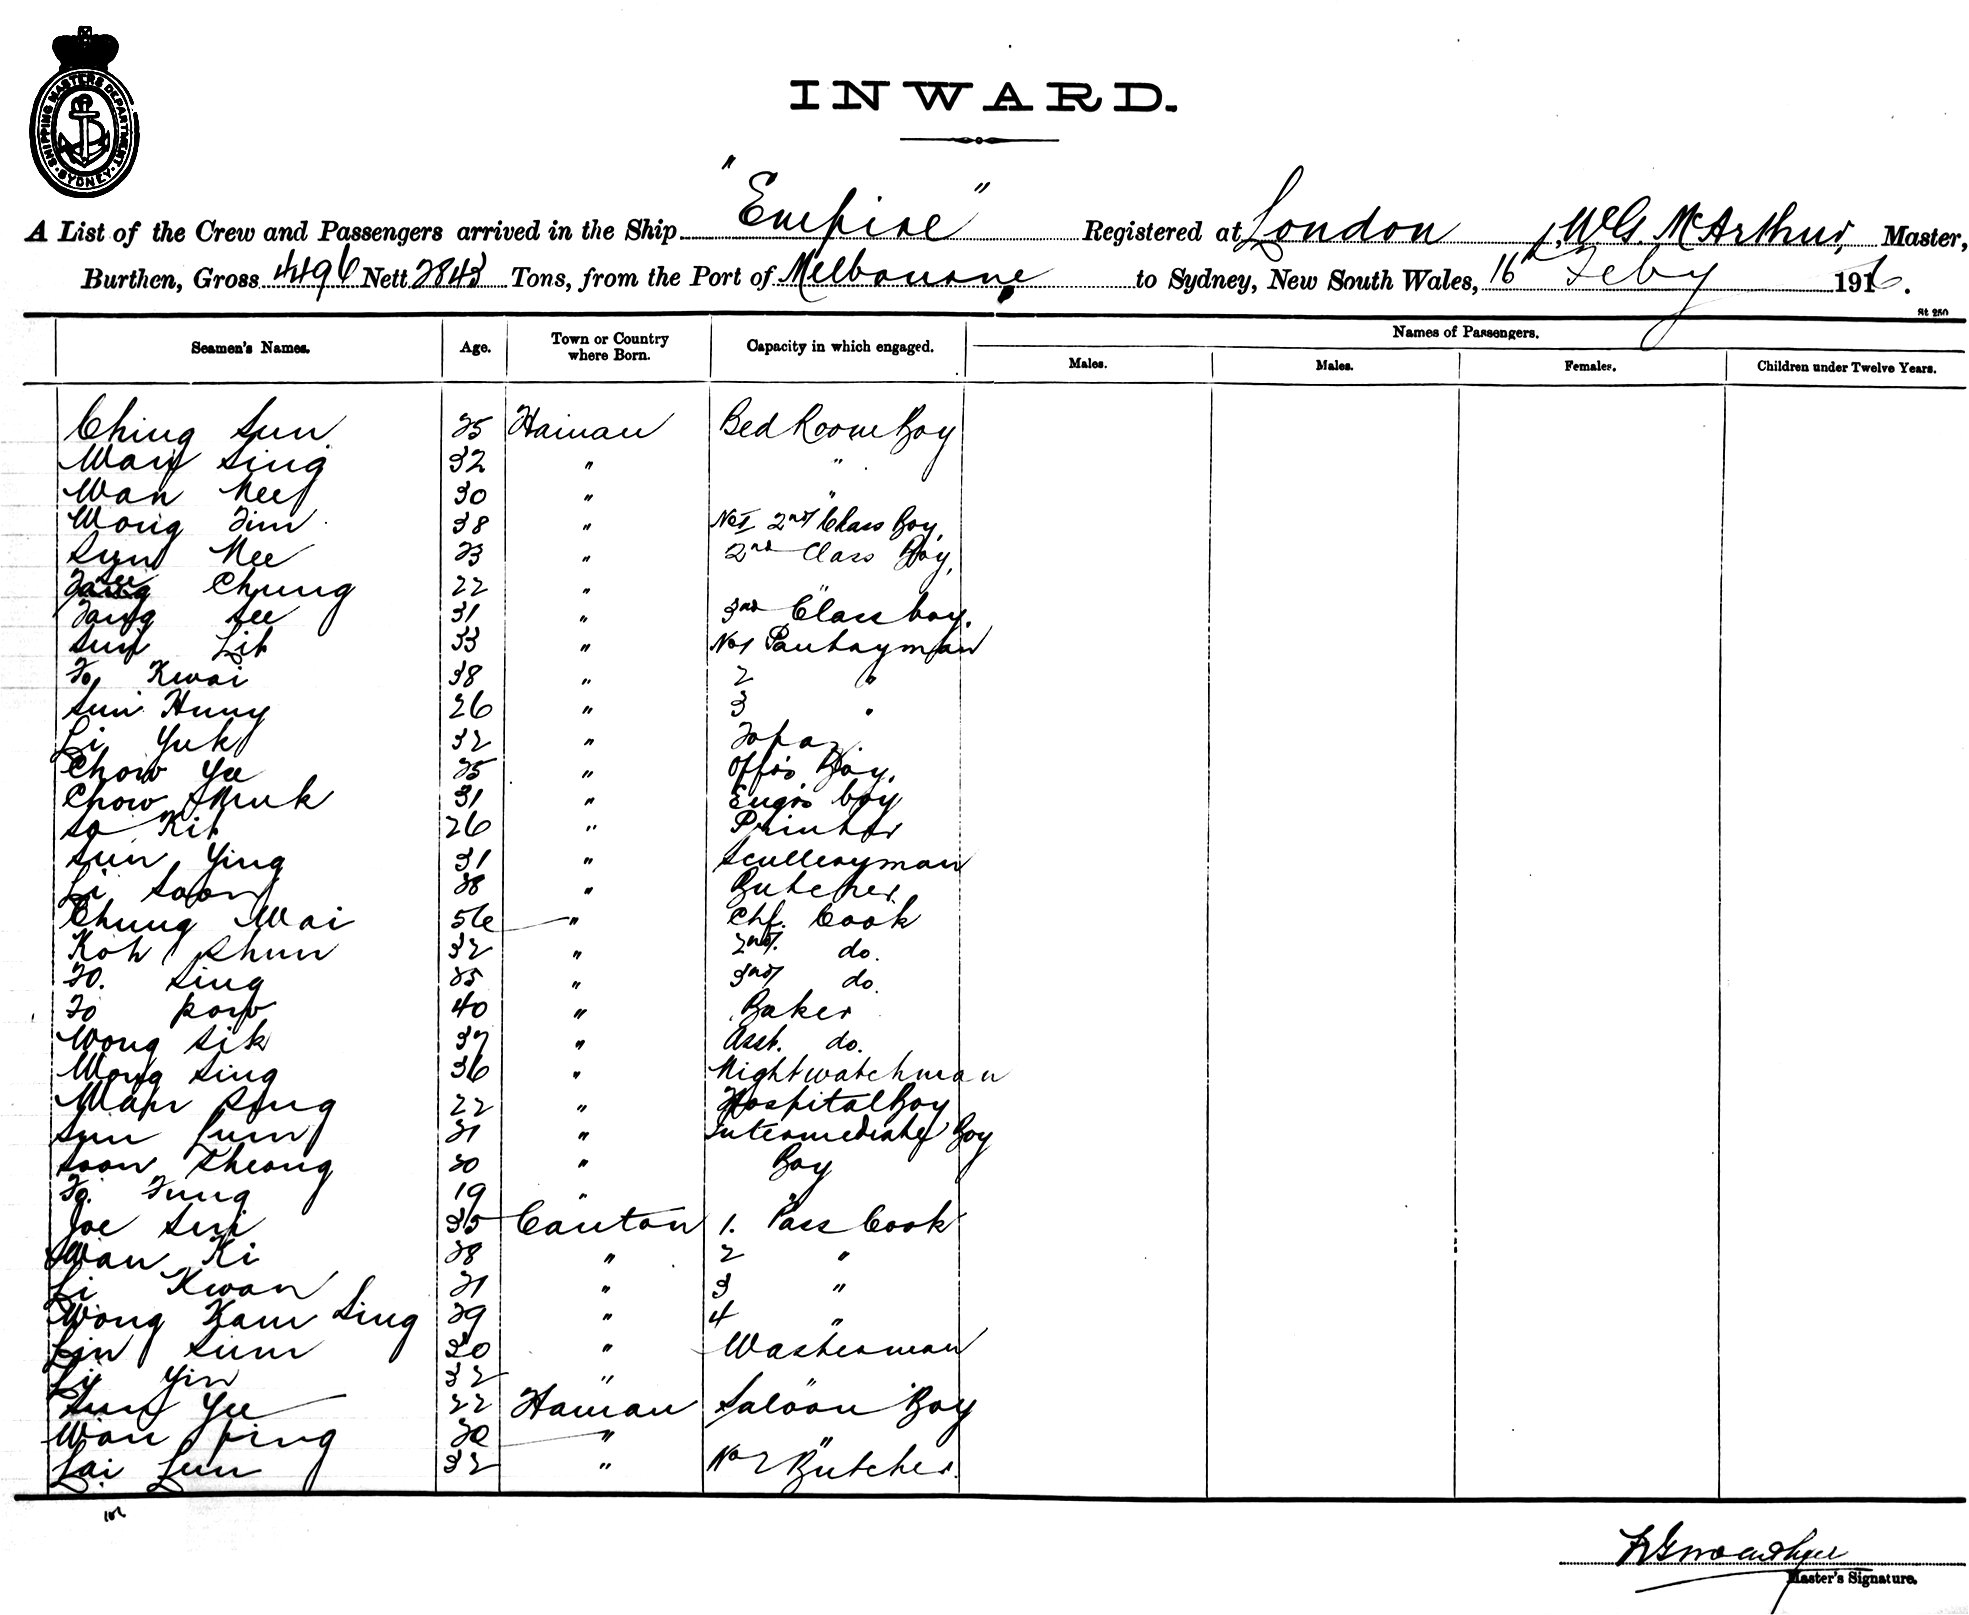 SHIPPING MASTERS DEPARTMENT SYDNEY
INWARD.
A List of the Crew and Passengers arrived in the Ship "Empire" Registered at London, W.G. McArthur, Master,
Burthen, Gross 4496 Nett 2843 Tons, from the Port of Melbourne to Sydney, New South Wales, 16 Feby 1916.
St 250
Seamen's Names. Age. Town or Country where Born. Capacity in which engaged. Names of Passengers.
Males. Males. Females. Children under Twelve Years.
Ching Sun 25 Hainan Bed Room Boy
Wan Sing 32 " "
Wan Mee 30 " "
Wong Tim 38 " No 1 2nd Class Boy,
Sun Mee 23 " 2nd Class Boy,
See Chung 22 " "
Tang See 31 " 3rd Class boy.
Sun Lit 33 " No 1 Pantryman
To Kwai 38 " 2 "
Sun Hung 26 " 3 "
Li Yuk 32 " Topaz
Chow Yee 25 " Offrs Boy,
Chow 31 " Engrs boy
So Kit 26 " Printer
Sun Ying 31 " Sculleryman
Li Soon 28 " Butcher
Chung Wai 56 " Chf. Cook
Koh Shun 32 " 2nd. do.
To. Sing 25 " 3rd do.
To Kow 40 " Baker
Wong Sik 37 " Asst. do.
Wong Sing 36 " Nightwatchman
Wan Sing 22 " Hospital Boy
Sun Lum 31 " Intermediate Boy
Soon Cheong 20 " Boy
To. Tung 19 " "
Joe Sui 35 Canton 1. Pass Cook
Wan Ki 28 " 2 "
Li Kwan 21 " 3 "
Wong Kam Sing 29 " 4 "
Lin Sum 30 " Washerman
Li Yin 32 " "
Sun Yee 22 Hainan Saloon Boy
Wan Ping 20 " "
Lai Lun 32 " No 2 Butcher.
Master's Signature.